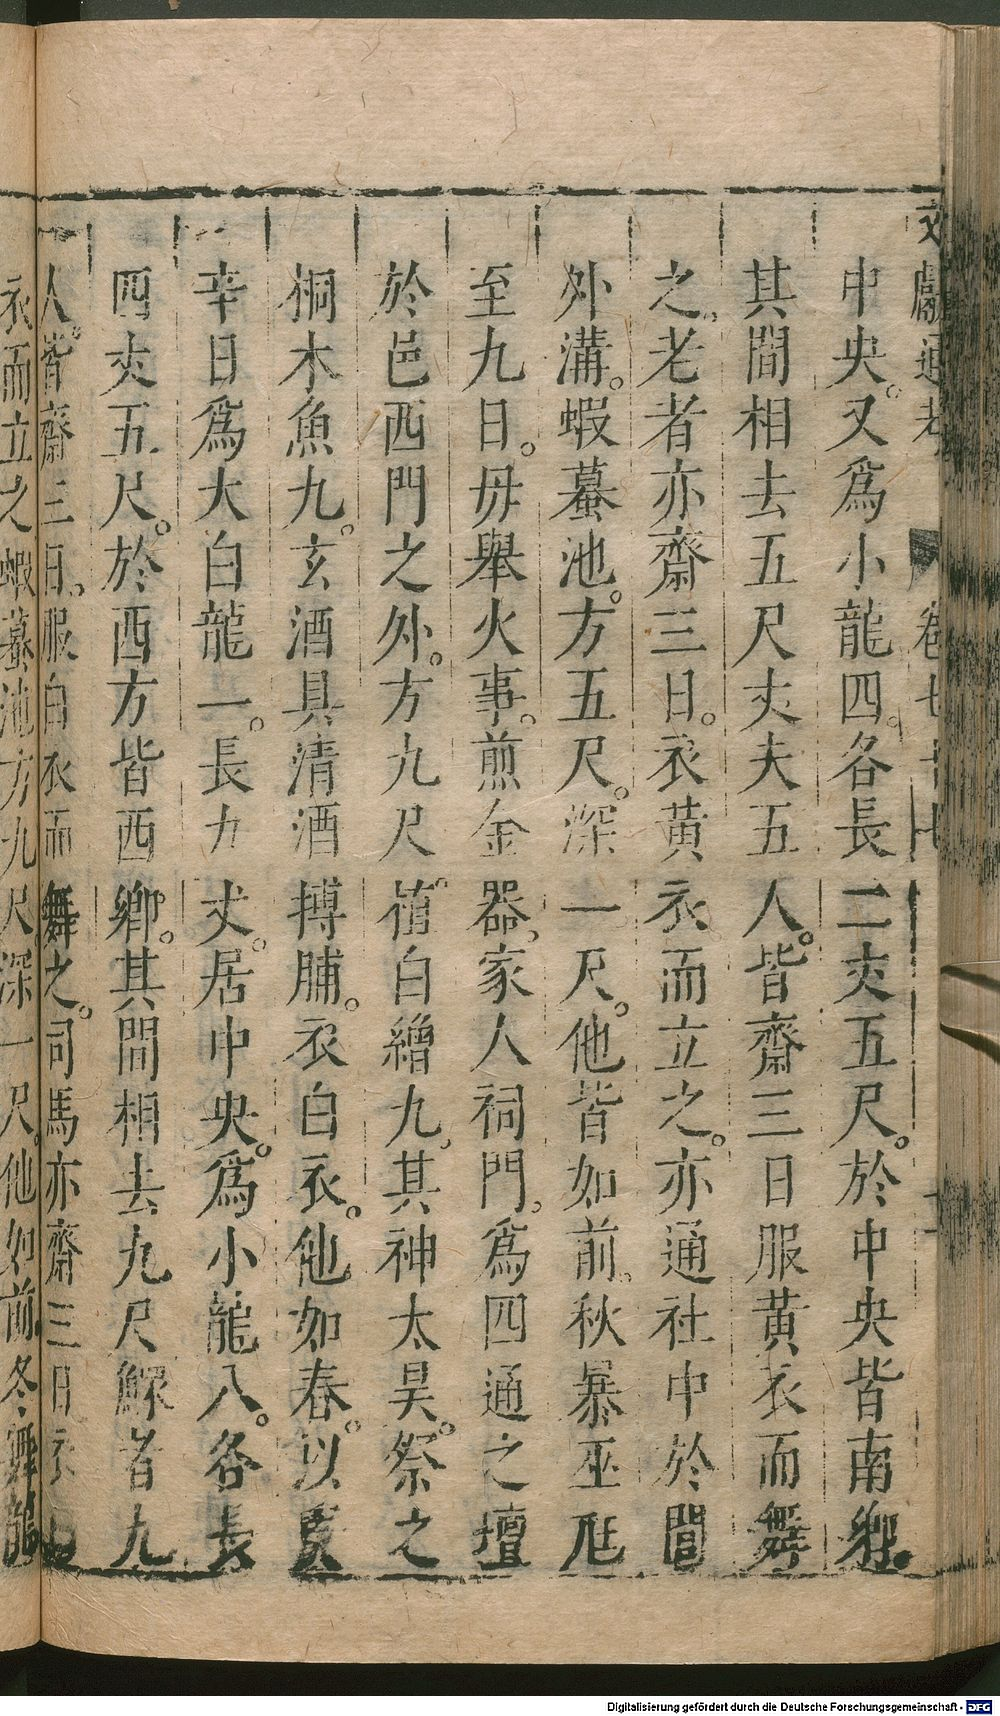 文獻通考 卷七十七
中央。又爲小龍四。各長二𠀋五尺。於中央皆南鄉。
其間相去五尺𠀋夫五人。皆齋三日服黃衣而舞
之。老者亦齋三日。衣黃衣而立之。亦通社中於閭
外溝。蝦蟇池。方五尺。深一尺。他皆如前。秋暴巫尫
至九日。毋舉火事。煎金器。家人祠門。爲四通之壇
於邑西門之外。方九尺。植白繒九。其神太昊。祭之
桐木魚九。玄酒具清酒搏脯。衣白衣。他如春。以夏
辛日爲大白龍一。長九丈。居中央。爲小龍八。各長
四𠀋五尺。於西方皆西鄉。其間相去九尺鰥者九
人。皆齋三日。服白衣而舞之。司馬亦齋三日衣白
衣而立之蝦蟇池方九尺深一尺。他如前冬舞龍
Digitalisierung gefördert durch die Deutsche Forschungsgemeinschaft - DFG